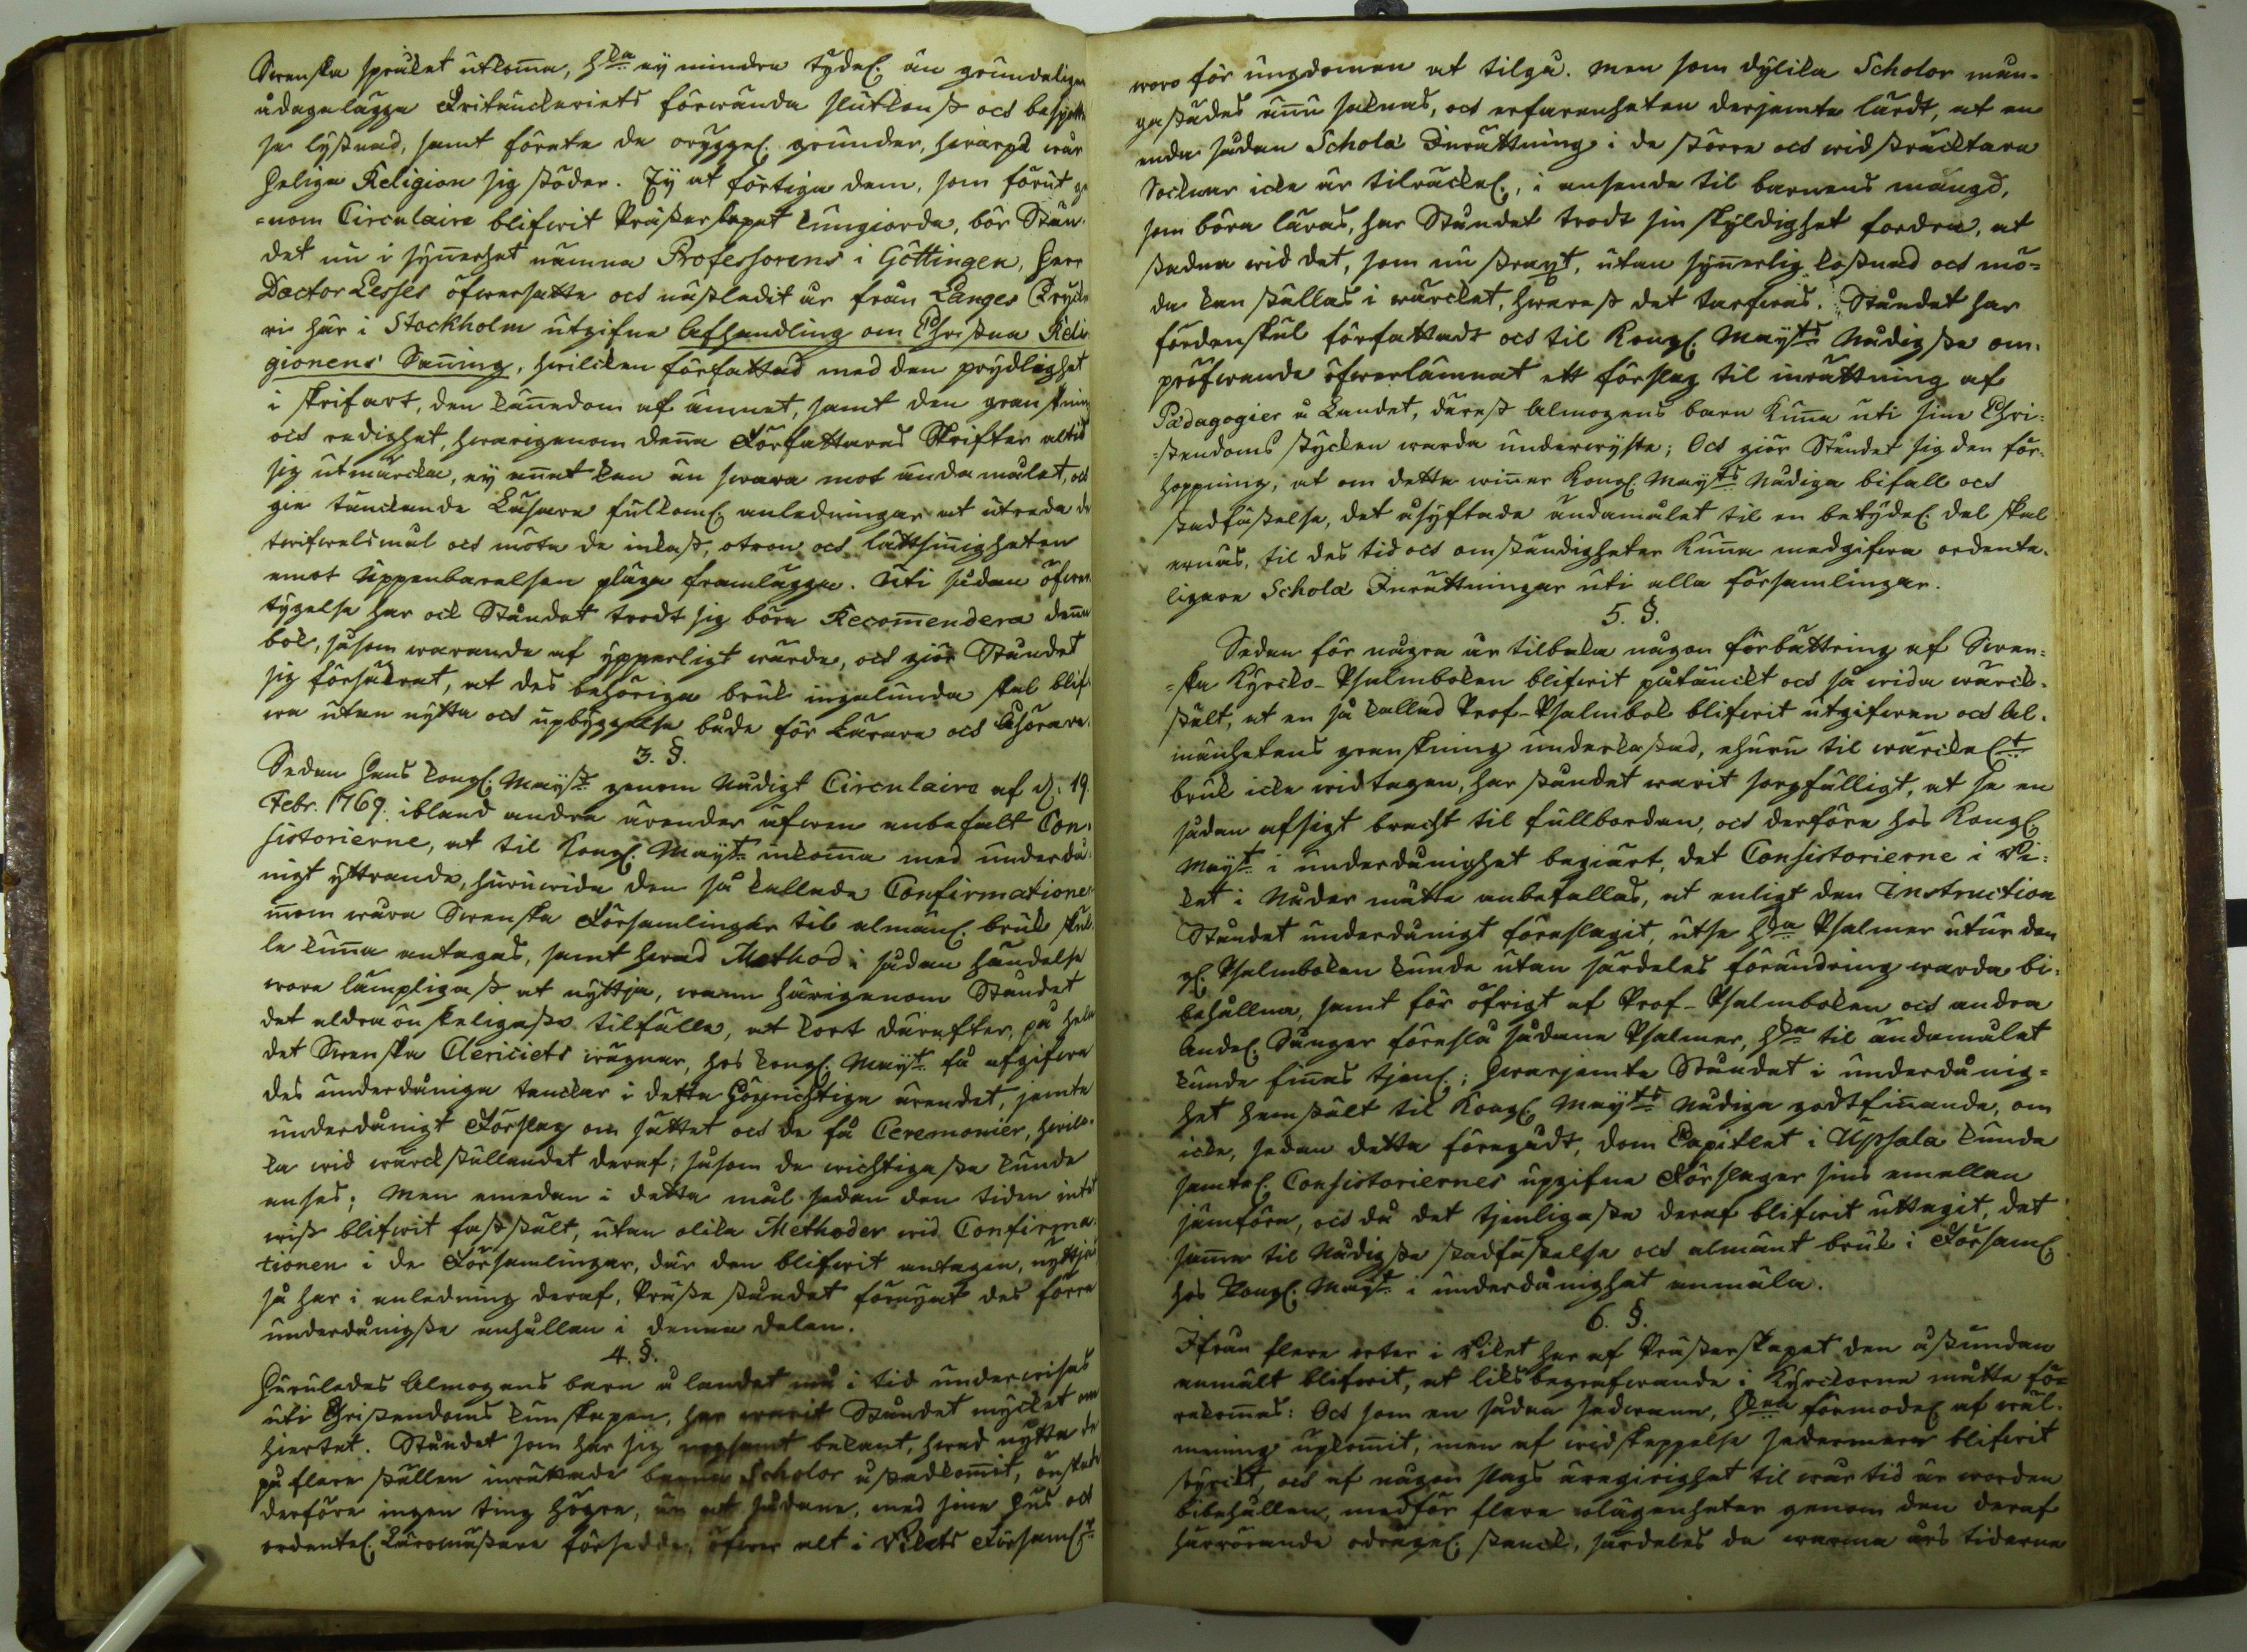 Swenska språket utkomma, hka ej mindre tydel. än grundeligen
ådagalägga Fritänckeriets förwända slutkonst och bespott-
se lystnad, samt förete de oryggel. grunder, hwarpå wår
heliga Religion sig stöder. Ty at förtiga dem, som förut ge-
=nom Circulaire blifwit Prästerskapet kungiorde, bör Stån-
det nu i synnerhet nämna Professorens i Göttingen, Herr
Doctor Lesses öfwersatte och nästledit år från Langes Trycke-
ri här i Stockholm utgifne Afhandling om Christna Reli-
gionens Sanning, hwilcken författad med den prydlighet
i skrifart, den kännedom af ämnet, samt den granskning
och redighet, hwarigenom denna Författares Skrifter altid
sig utmärcka, ej annat kan än swara mot ändamålet, och
gie tänckande Läsare fullkoml. anledningar at utreda de
twifwelsmål och möta de inkast, otron och lättsinnigheten
emot Uppenbarelsen pläga framlägga. Uti sådan öfwer-
tygelse har ock Ståndet trodt sig böra Recommendera denna
bok, såsom warande af ypperligt wärde, och giör Ståndet
sig försäkrat, at des behöriga bruk ingalunda skal blif-
wa utan nytta och upbyggelse både för Lärare och Åhörare.
3. §.
Sedan Hans Kongl. Mayst. genom Nådigt Circulaire af d. 19.
Febr. 1769. ibland andra ärender äfwen anbefalt Con-
sistorierne, at til Kongl. Mayt. inkomma med underdå-
nigt yttrande, huruwida den så kallade Confirmationen
inom wåra Swenska Församlingar til almänl. bruk skul-
le kunna antagas, samt hwad Method i sådan händelse
wore lämpligast at nyttja, wann härigenom Ståndet
det aldraönskeligaste tilfälle, at kort därefter, på hela
det Swenska Clericiets wägnar, hos Kongl. Mayt. få afgifwa
des underdåniga tanckar i detta högwichtiga ärendet, jemte
underdånigt Förslag om sättet och de få Ceremonier, hwilc-
ka wid wärckställandet deraf, såsom de wichtigaste kunde
anses; Men emedan i detta mål sedan den tiden intet
wist blifwit faststält, utan olika Methoder wid Confirma-
tionen i de Församlingar, där den blifwit antagen, nyttjas
så har i anledning deraf, Prästeståndet förnyat des förra
underdånigste anhållan i denna delen.
4. §.
Huruledes Almogens barn å landet må i tid underwisas
uti Christendoms kunskapen, har warit Ståndet mycket om
hiertat. Ståndet som har sig nogsamt bekant, hwad nytta de
på flere ställen inrättade barna Scholor åstadkommit, önskade
derföre ingen ting högre, än at sådane, med sine hus och
ordentel. Läromästare försedde, öfwer alt i Rikets Församl.r
woro för ungdomen at tilgå. Men som dylika Scholor mån-
gastädes ännu saknas, och erfarenheten derjemte lärdt, at en
enda sådan Schola Inrättning i de större och widsträcktare
Socknar icke är tilräckel., i anseende til barnens mängd,
som böra läras, har Ståndet trodt sin skyldighet fordra, at
stadna wid det, som nu straxt, utan synnerlig kostnad och mö-
da kan ställas i wärcket, hwarest det tarfwas. Ståndet har
fördenskul författadt och til Kongl. Mayts Nådigste om-
pröfwande öfwerlämnat ett förslag til inrättning af
Pædagogier å Landet, därest Almogens barn kunna uti sine Chri-
=stendoms stycken warda underwyste; Och giör Ståndet sig den för-
hoppning, at om detta winner Kongl. Mayts Nådiga bifall och
stadfästelse, det åsyftade ändamålet til en betydel. del skal
ernås, til des tid och omständigheter kunna medgifwa ordente-
ligare Schola Inrättningar uti alla församlingar.
5. §.
Sedan för några år tilbaka någon förbättring af Swen-
=ska Kyrcko-Psalmboken blifwit påtänckt och så wida wärck-
stält, at en så kallad Prof-Psalmbok blifwit utgifwen och Al-
mänhetens granskning underkastad, ehuru til wärckel.t
bruk icke widtagen, har ståndet warit sorgfälligt, at se en
sådan afsigt bracht til fullbordan, och derföre hos Kongl.
Mayt. i underdånighet begiärt, det Consistorierne i Ri-
ket i Nåder måtte anbefallas, at enligt den Instruction
Ståndet underdånigt föreslagit, utse hka Psalmer utur den
gl. Psalmboken kunde utan särdeles förändring warda bi-
behållna, samt för öfrigt af Prof-Psalmboken och andra
Andel. Sånger föreslå sådane Psalmer, hka til ändamålet
kunde finnas tjenl.; Hwarjemte Ståndet i underdånig-
het hemstält til Kongl. Mayts Nådiga godtfinnande, om
icke, sedan detta föregådt, Dom Capitlet i Upsala kunde
samtel. Consistoriernes upgifne Förslager sins emellan
jämföra, och då det tjenligaste deraf blifwit uttagit, det
samma til Nådigste stadfästelse och almänt bruk i Församl.
hos Kongl. Mayt. i underdånighet anmäla.
6. §.
Ifrån flere orter i Riket har af Prästerskapet den åstundan
anmält blifwit, at liksbegrafwande i Kyrckorna måtte för-
rekommas: Och som en sådan sedwana, hken förmodel. af wäl-
mening upkommit, men af widskeppelse sedermera blifwit
styrckt, och af någon slags äregirighet til wår tid är worden
bibehållen, medför flere olägenheter genom den deraf
härrörande odrägel. stanck, särdeles de warma års tiderne